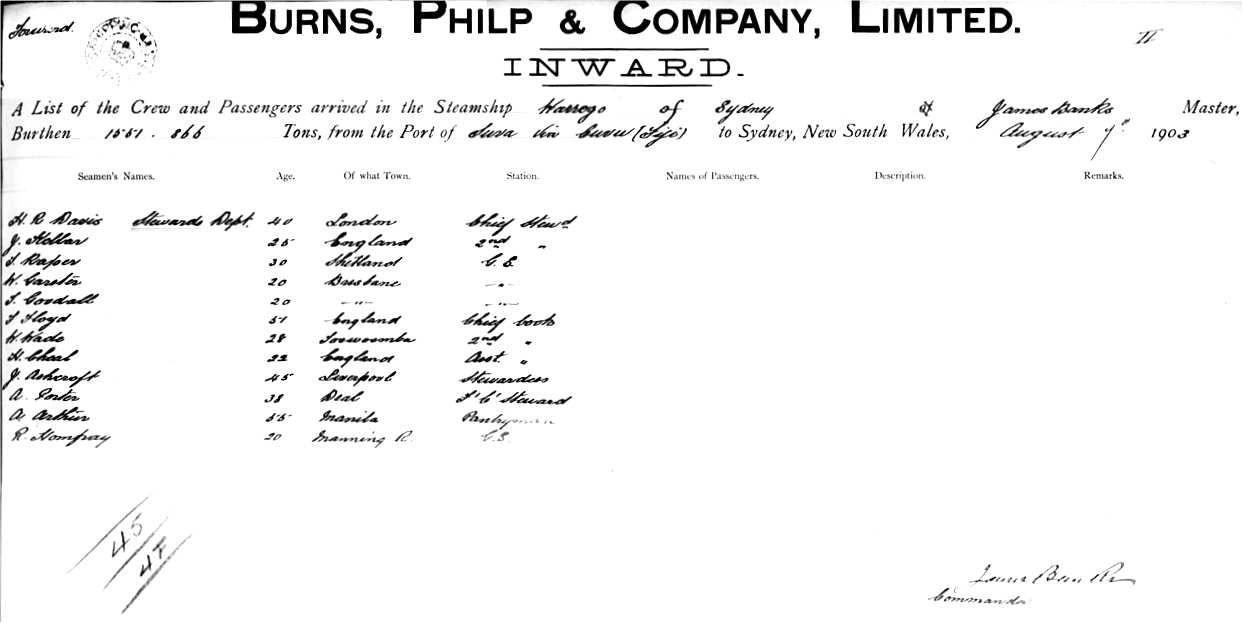 Forward.
BURNS, PHILP & COMPANY, LIMITED.
II
INWARD.
A List of the Crew and Passengers arrived in the Steamship Warrego of Sydney James Banks Master,
Burthen 1551.866 Tons, from the Port of Suva via (Fiji) to Sydney, New South Wales, August 7th 1903
Seamen's Names. Age. Of what Town. Station. Names of Passengers. Description. Remarks.
H. R Davis Stewards Dept. 40 London Chief Stewd
J. 25 England 2nd "
J. Raper 30 Shetland G. S.
W. Garster 20 Brisbane — " —
J. Goodall 20 — " — — " —
J Floyd 51 England Chief Cook
W. Wade 28 Toowoomba 2nd "
H. Cheal 22 England Asst. "
J. Ashcroft 45 Liverpool Stewardess
A. Porter 38 Deal F'C' Steward
A. Arthur 55 Manila Pantryman
R. Homfray 20 Manning R. G.S.
45
47
James Banks
Commander